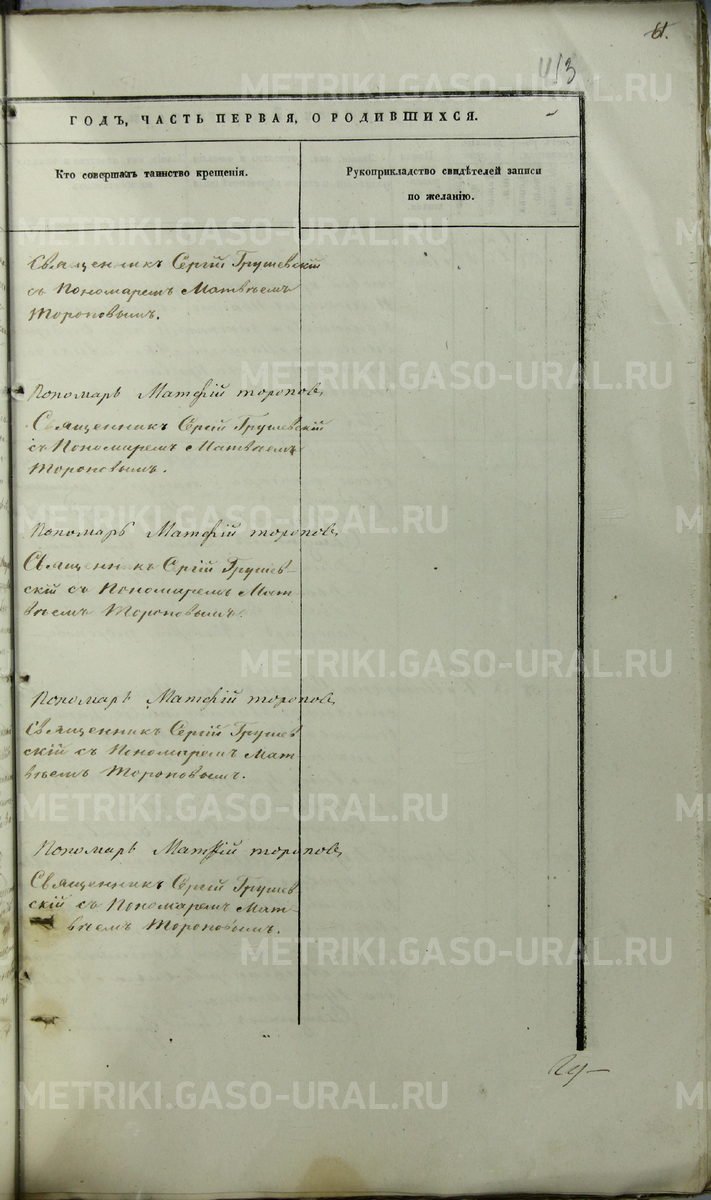 61.
413
ГОДЪ, ЧАСТЬ ПЕРВАЯ, О РОДИВШИХСЯ.
Кто совершалъ таинство крещенія.
Рукоприкладство свидѣтелей записи
по желанію.
Священникъ Сергій Грушевскій
съ Пономаремъ Матвѣемъ
Тороповымъ.
Пономарь Матфій торопов,
Священникъ Сергій Грушевскій
съ Пономаремъ Матвѣемъ
Тороповымъ.
Пономарь Матфій торопов,
Священникъ Сергій Грушев-
скій съ Пономаремъ Мат-
вѣемъ Тороповымъ.
Пономарь Матфій торопов,
Священникъ Сергій Грушев
скій съ Пономаремъ Мат-
вѣемъ Тороповымъ.
Пономарь Матфій торопов,
Священникъ Сергій Грушев
скій съ Пономаремъ Мат-
вѣемъ Тороповымъ.
METRIKI.GASO-URAL.RU
METRIKI.GASO-URAL.RU
METRIKI.GASO-URAL.RU
METRIKI.GASO-URAL.RU
METRIKI.GASO-URAL.RU
METRIKI.GASO-URAL.RU
METRIKI.GASO-URAL.RU
METRIKI.GASO-URAL.RU